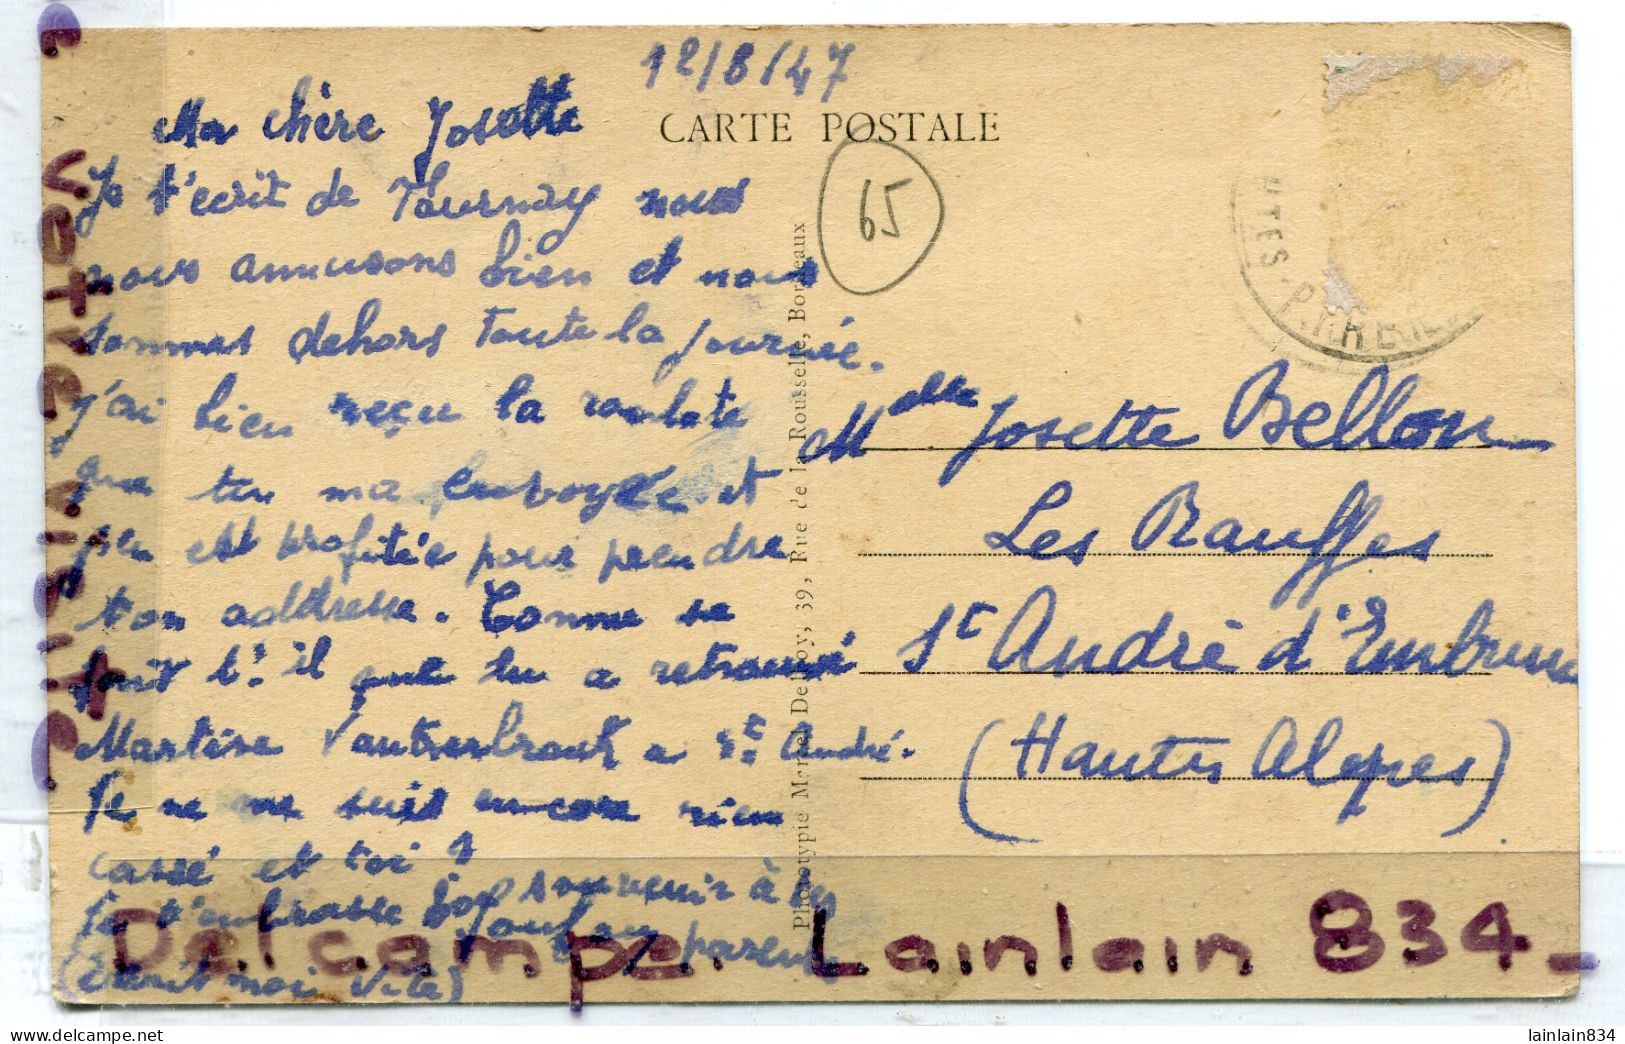 12/8/47
CARTE POSTALE
65
Ma chère Josette
Je t'ecrit de Tournay nous
nous amusons bien et nous
sommes dehors toute la journée.
j'ai bien reçu la
que tu ma envoyée et
j'en est profitée pour prendre
ton addresse. Comme se
fait t'-il que tu a retrouvé
Martine a St André.
Je ne me suis encore rien
cassé et toi ?
Je t'embrasse bon souvenir à tes
parents
(Ecrit moi vite)
Melle Josette Bellon
Les Rauffes
St André d'Embrun
(Hautes Alpes)
Phototypie Marcel Delboy, 39, Rue de la Rousselle, Bordeaux
Votre visite
Delcampe. Lainlain 834_
delcampe.net
lainlain834